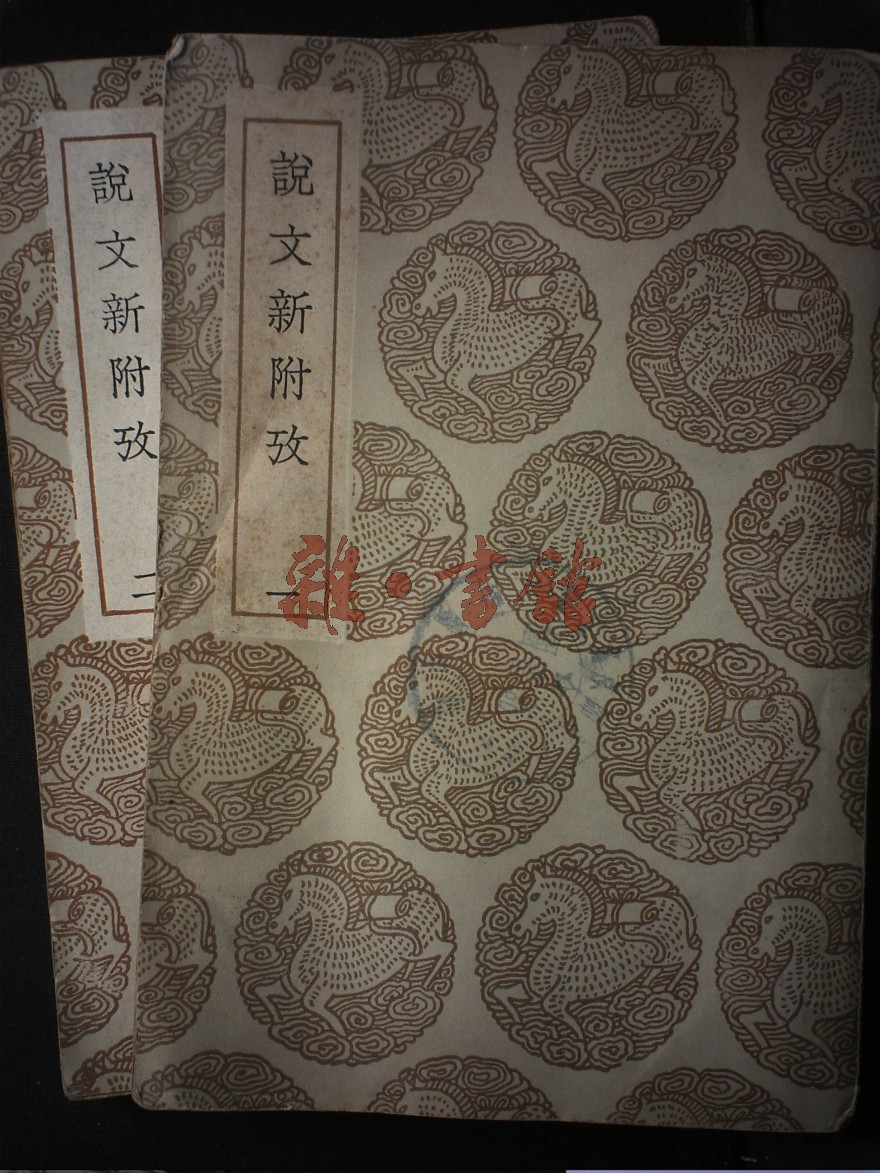 說文新附攷
一
說文新附攷
二
雜·書館